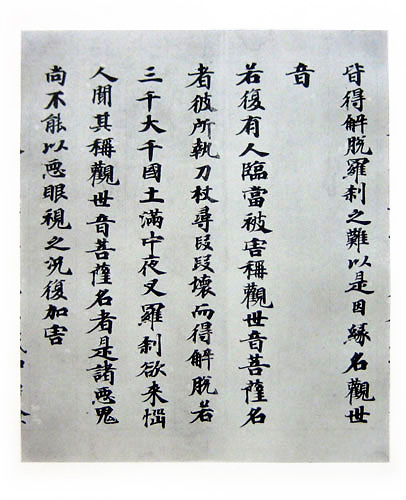 皆得解脫羅刹之難以是因緣名觀世
音
若復有人臨當被害稱觀世音菩薩名
者彼所執刀杖尋段段壞而得解脫若
三千大千國土滿中夜叉羅刹欲来惱
人聞其稱觀世音菩薩名者是諸惡鬼
尚不能以惡眼視之況復加害